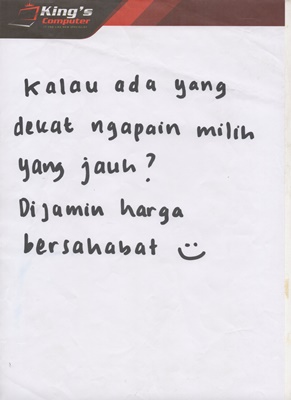 King's
Computer
Kalau ada yang
dekat ngapain milih
yang jauh?
Dijamin harga
bersahabat